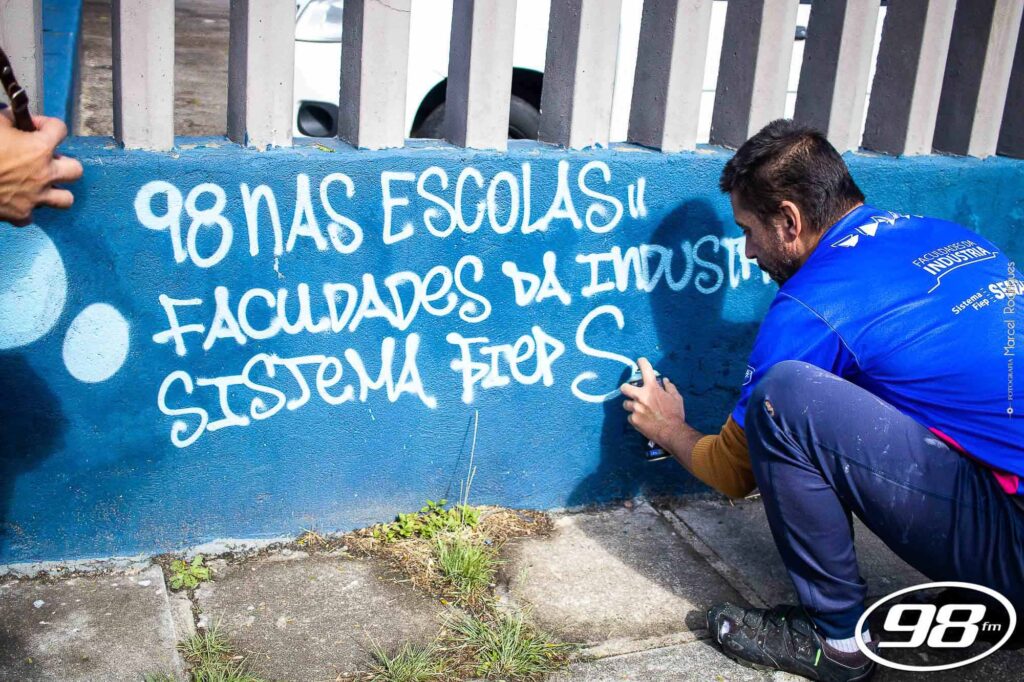 98 NAS ESCOLAS"
FACULDADES DA INDUSTRIA
SISTEMA FIEP S
FACULDADES DA
INDÚSTRIA
Sistema
Fiep
FOTOGRAFIA Marcel Rodrigues
98 fm